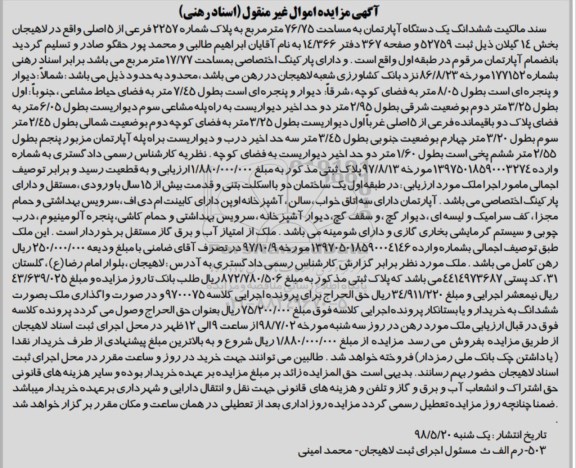 آگهی مزایده اموال غیر منقول (اسناد رهنی)
سند مالکیت ششدانگ یک دستگاه آپارتمان به مساحت ۷۶/۷۵ مترمربع به پلاک شماره ۲۲۵۷ فرعی از ۵ اصلی واقع در لاهیجان
بخش ۱۴ گیلان ذیل ثبت ۵۲۷۵۹ و صفحه ۳۶۷ دفتر ۱۴/۳۶۶ به نام آقایان ابراهیم طالبی و محمد پور حقگو صادر و تسلیم گردید
بانضمام آپارتمان مرقوم در طبقه اول واقع است . و دارای پارکینگ اختصاصی بمساحت ۱۷/۷۷ مترمربع می باشد برابر اسناد رهنی
بشماره ۱۷۷۱۵۲ مورخه ۸۶/۸/۲۳ نزد بانک کشاورزی شعبه لاهیجان در رهن می باشد ، محدود به حدود ذیل می باشد : شمالاً : دیوار
و پنجره ای است بطول ۸/۰۵ متر به فضای کوچه ، شرقاً : دیوار و پنجره ای است بطول ۷/۴۵ متر به فضای حیاط مشاعی ، جنوباً : اول
بطول ۳/۲۵ متر دوم بوضعیت شرقی بطول ۲/۹۵ متر دو حد اخیر دیواریست به راه پله مشاعی سوم دیواریست بطول ۶/۰۵ متر به
فضای پلاک دو باقیمانده فرعی از ۵ اصلی غرباً اول دیواریست بطول ۳/۲۵ متر به فضای کوچه دوم بوضعیت شمالی بطول ۲/۴۵ متر
سوم بطول ۳/۲۰ متر چهارم بوضعیت جنوبی بطول ۳/۴۵ متر سه حد اخیر درب و دیواریست براه پله آپارتمان مزبور پنجم بطول
۲/۵۵ متر ششم پخی است بطول ۱/۶۰ متر دو حد اخیر دیواریست به فضای کوچه . نظریه کارشناس رسمی دادگستری به شماره
وارده ۱۳۹۷۵۰۱۸۵۹۰۰۳۲۷۴ مورخ ۹۷/۸/۱۳ پلاک ثبتی مذکور به مبلغ ۱/۸۸۰/۰۰۰/۰۰۰ ارزیابی و به قطعیت رسید و برابر توصیف
اجمالی مامور اجرا ملک مورد ارزیابی : در طبقه اول یک ساختمان دو با اسکلت بتنی و قدمت بیش از ۱۵ سال با ورودی ، مستقل و دارای
پارکینگ اختصاصی می باشد . آپارتمان دارای سه اتاق خواب ، سالن ، آشپزخانه اوپن دارای کابینت ام دی اف ، سرویس بهداشتی و حمام
مجزا ، کف سرامیک و لیسه ای ، دیوار گچ ، و سقف گچ ، دیوار آشپزخانه ، سرویس بهداشتی و حمام کاشی ، پنجره آلومینیوم ، درب
چوبی و سیستم گرمایشی بخاری گازی و دارای شومینه می باشد . ملک از امتیاز آب و برق گاز مستقل برخوردار است . این ملک
طبق توصیف اجمالی بشماره وارده ۱۳۹۷۰۵۰۱۸۵۹۰۰۰۴۱۴۶ مورخه ۹۷/۱۰/۹ در تصرف آقای ضامنی با مبلغ ودیعه ۲۵۰/۰۰۰/۰۰۰ ریال
رهن کامل می باشد . ملک مورد نظر برابر گزارش کارشناس رسمی دادگستری به آدرس : لاهیجان ، بلوار امام رضا (ع) ، گلستان
۳۱ ، کد پستی ۴۴۱۴۹۷۳۶۸۷ می باشد که پلاک ثبتی مذکور به مبلغ ۸۷۲/۷۸۰/۵۰۶ ریال طلب بانک تا روز مزایده و مبلغ ۴۳/۶۳۹/۰۲۵
ریال نیمعشر اجرایی و مبلغ ۳۴/۹۱۱/۲۲۰ ریال حق الحراج برای پرونده اجرایی کلاسه ۹۷۰۰۰۷۵ و در صورت واگذاری ملک بصورت
ششدانگ به خریدار و یا بستانکار پرونده اجرایی کلاسه فوق مبلغ ۷۵/۲۰۰/۰۰۰ ریال بعنوان حق الحراج وصول می گردد پرونده کلاسه
فوق در قبال ارزیابی ملک مورد رهن در روز سه شنبه مورخه ۹۸/۷/۰۲ از ساعت ۹ الی ۱۲ ظهر در محل اجرای ثبت اسناد لاهیجان
از طریق مزایده بفروش می رسد مزایده از مبلغ ۱/۸۸۰/۰۰۰/۰۰۰ ریال شروع و به بالاترین مبلغ پیشنهادی از طرف خریدار نقدا
( با داشتن چک بانک ملی رمزدار) فروخته خواهد شد . طالبین می توانند جهت خرید در روز و ساعت مقرر در محل اجرای ثبت
اسناد لاهیجان حضور بهم رسانند . بدیهی است حق المزایده زائد بر مبلغ مزایده بر عهده خریدار بوده و سایر هزینه های قانونی
حق اشتراک و انشعاب آب و برق و گاز و تلفن و هزینه های قانونی جهت نقل و انتقال دارایی و شهرداری برعهده خریدار میباشد
. ضمنا چنانچه روز مزایده تعطیل رسمی گردد مزایده روز اداری بعد از تعطیلی در همان ساعت و مکان مقرر برگزار خواهد شد
.
تاریخ انتشار : یک شنبه ۹۸/۵/۲۰
۵۰۳- رم الف ث مسئول اجرای ثبت لاهیجان- محمد امینی